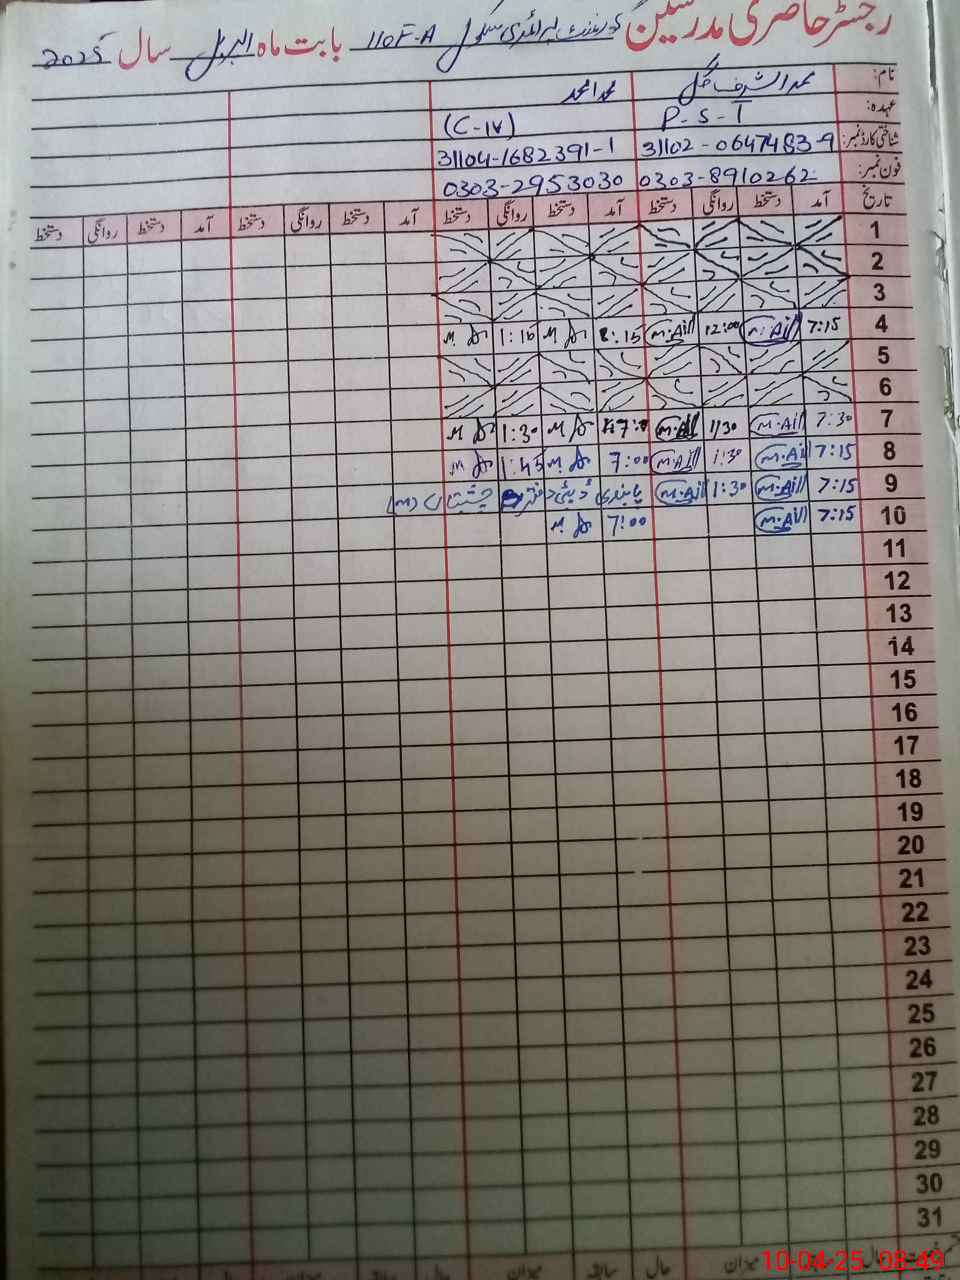 رجسٹر حاضری مدرسین گورنمنٹ پرائمری سکول 110F-A بابت ماہ اپریل سال 2025
نام: محمد اشرف گل محمد امجد
عہدہ: P-S-T (C-IV)
شناختی کارڈ نمبر: 31102-0647483-9 31104-1682391-1
فون نمبر: 0303-8910262 0303-2953030
تاریخ آمد دستخط روانگی دستخط آمد دستخط روانگی دستخط آمد دستخط روانگی دستخط آمد دستخط روانگی دستخط
1
2
3
4 7:15 M.Ail 12:00 M.Ail 8:15 1:16
5
6
7 7:30 M.Ail 1:30 M.Ail 7:0 1:30
8 7:15 M.Ail 1:30 M.Ail 7:00 1:45
9 7:15 M.Ail 1:30 M.Ail چشتیاں (M)
10 7:15 M.Ail 7:00
11
12
13
14
15
16
17
18
19
20
21
22
23
24
25
26
27
28
29
30
31
حال میزان حال سابقہ میزان
10-04-25 08:49